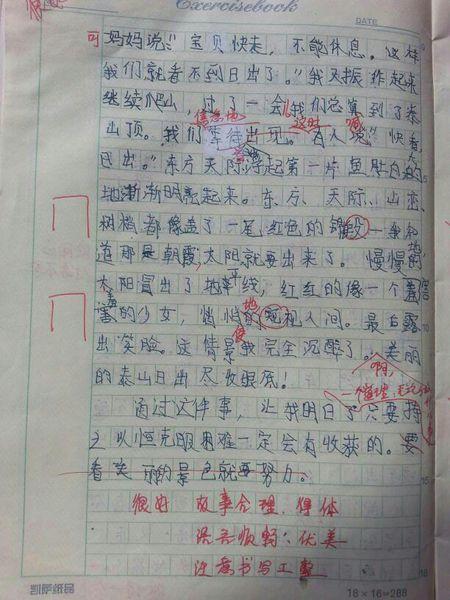 Exercisebook
DATE
可妈妈说：“宝贝快走，不能休息。这样
我们就看不到日出了。”我又振作起来
继续爬山，过了一会儿我们总算到了泰
山顶。我们等待出现。有人说“快看，
日出。”东方天际浮起第一片鱼肚白
地渐渐明亮起来。东方、天际、山峦、
树梢都像盖了一层红色的锦
道那是朝霞，太阳就要出来了。慢慢的
太阳冒出了地平线，红红的像一个羞
害的少女，悄悄的窥视人间。最后露
出笑脸。这情景使我完全沉醉了。美丽
的泰山日出尽收眼底！
啊，
一个道理：无论
通过这件事，让我明白了只要持
之以恒克服困难一定会有收获的。要
看美丽的景色就要努力。
很好 故事合理、得体
语言顺畅、优美
注意书写工整
凯萨纸品
18×16=288